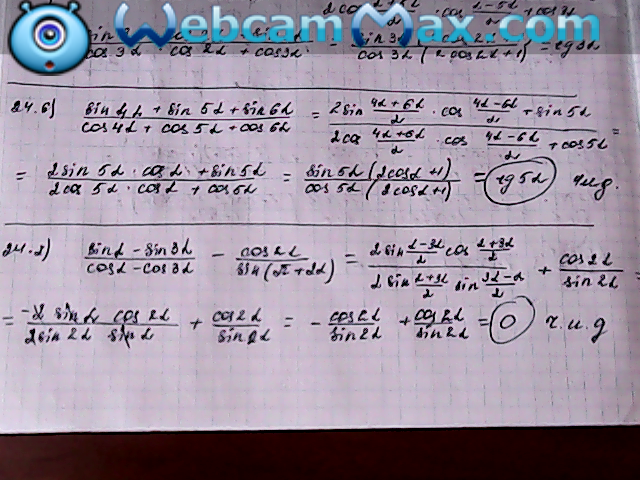 2cos (4α+2α)/2 · cos (4α-2α)/2 + cos3α
WebcamMax.com
cos 3α cos 2α + cos3α = sin3α / cos 3α (2 cos α+1) = tg 3α
24.б) (sin4α + sin 5α + sin6α)/(cos4α + cos5α + cos6α) = (2sin (4α+6α)/2 · cos (4α-6α)/2 + sin5α)/(2cos (4α+6α)/2 · cos (4α-6α)/2 + cos5α) =
= (2sin 5α · cosα + sin5α)/(2cos 5α · cosα + cos5α) = (sin5α (2cosα+1))/(cos5α (2cosα+1)) = tg5α ч.и.д.
24.2) (sinα - sin3α)/(cosα - cos3α) - cos2α/sin(π+2α) = (2sin (α-3α)/2 cos (α+3α)/2)/(2sin (α+3α)/2 sin (3α-α)/2) + cos2α/sin2α =
= (-2 sinα cos2α)/(2sin2α sinα) + cos2α/sin2α = - cos2α/sin2α + cos2α/sin2α = 0 ч.и.д